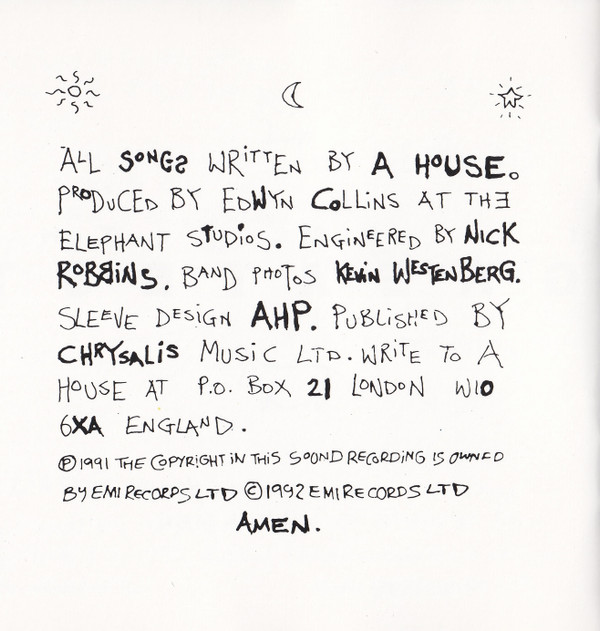 ALL SONGS WRITTEN BY A HOUSE.
PRODUCED BY EDWYN COLLINS AT THE
ELEPHANT STUDIOS. ENGINEERED BY NICK
ROBBINS. BAND PHOTOS KEVIN WESTENBERG.
SLEEVE DESIGN AHP. PUBLISHED BY
CHRYSALIS MUSIC LTD. WRITE TO A
HOUSE AT P.O. BOX 21 LONDON W10
6XA ENGLAND.
℗1991 THE COPYRIGHT IN THIS SOUND RECORDING IS OWNED
BY EMI RECORDS LTD ©1992 EMI RECORDS LTD
AMEN.